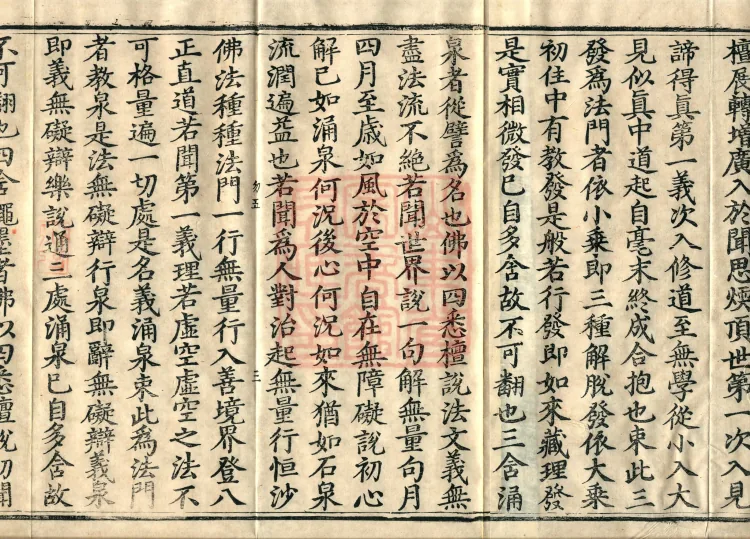 檀展轉增廣入於聞思煗頂世第一次入見
諦得真第一義次入修道至無學從小入大
見似真中道起自毫末終成合抱也束此三
發為法門者依小乘即三種解脫發依大乘
初住中有教發是般若行發即如來藏理發
是實相微發已自多含故不可翻也三含涌
泉者從譬為名也佛以四悉檀說法文義無
盡法流不絕若聞世界說一句解無量句月
四月至歲如風於空中自在無障礙說初心
解已如涌泉何況後心何況如來猶如石泉
流潤遍益也若聞為人對治起無量行恒沙
勿五 三
佛法種種法門一行無量行入善境界登八
正直道若聞第一義理若虛空虛空之法不
可格量遍一切處是名義涌泉束此為法門
者教泉是法無礙辯行泉即辭無礙辯義泉
即義無礙辯樂說通三處涌泉已自多含故
不可翻也四含繩墨者佛以四悉檀說初聞